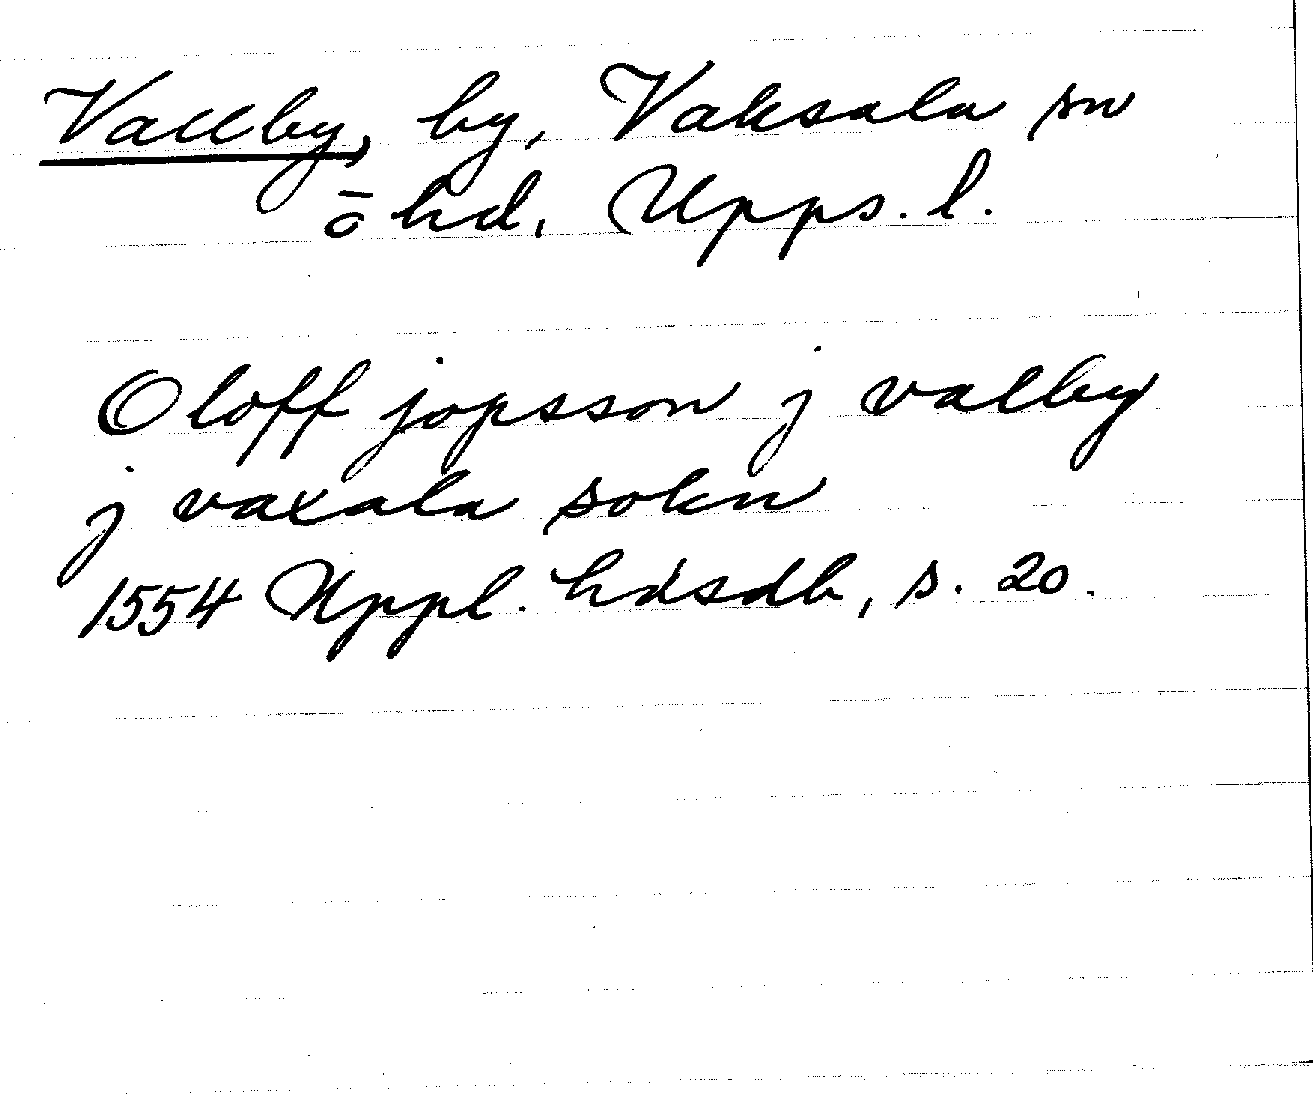 Vallby, by, Vaksala sn
ō hd. Upps. l.
Oloff jopsson j valby
j vaxala sokn
1554 Uppl. hdsdb, s. 20.